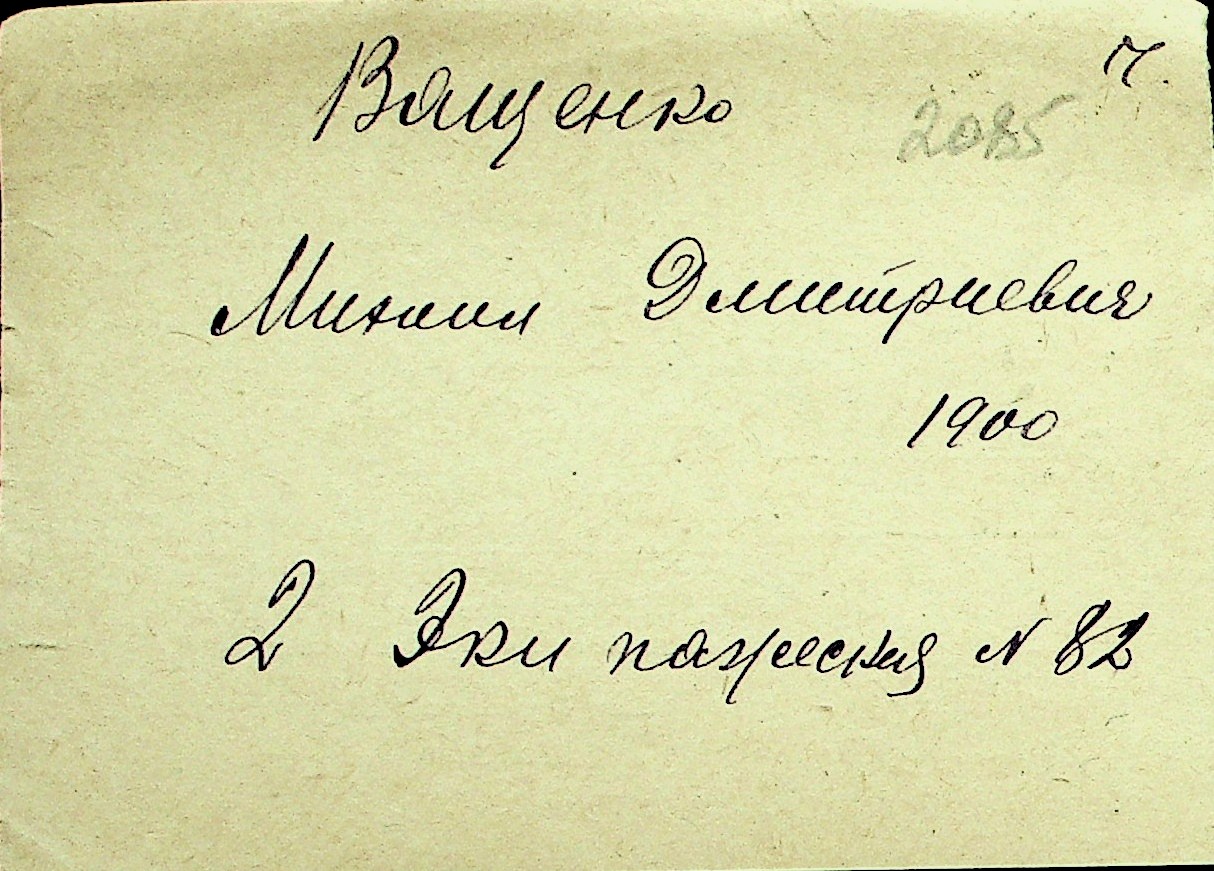 Ващенко 7.
2085
Михаил Дмитриевич
1900
2 Экипажеская N 82